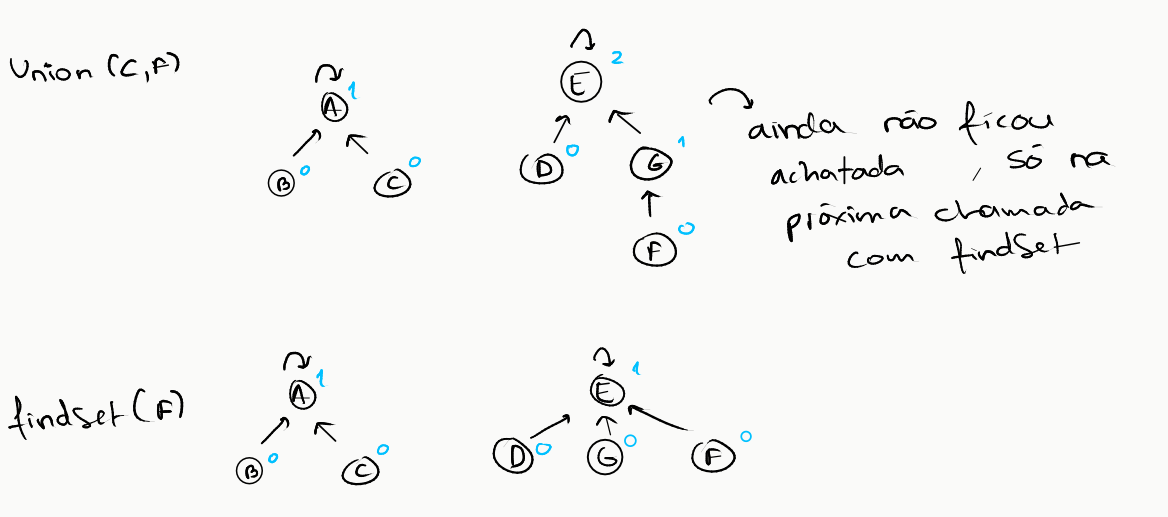 Union (C,F)
A 1
B 0
C 0
E 2
D 0
G 1
F 0
ainda não ficou
achatada, só na
próxima chamada
com findSet
findset(F)
A 1
B 0
C 0
E 1
D 0
G 0
F 0